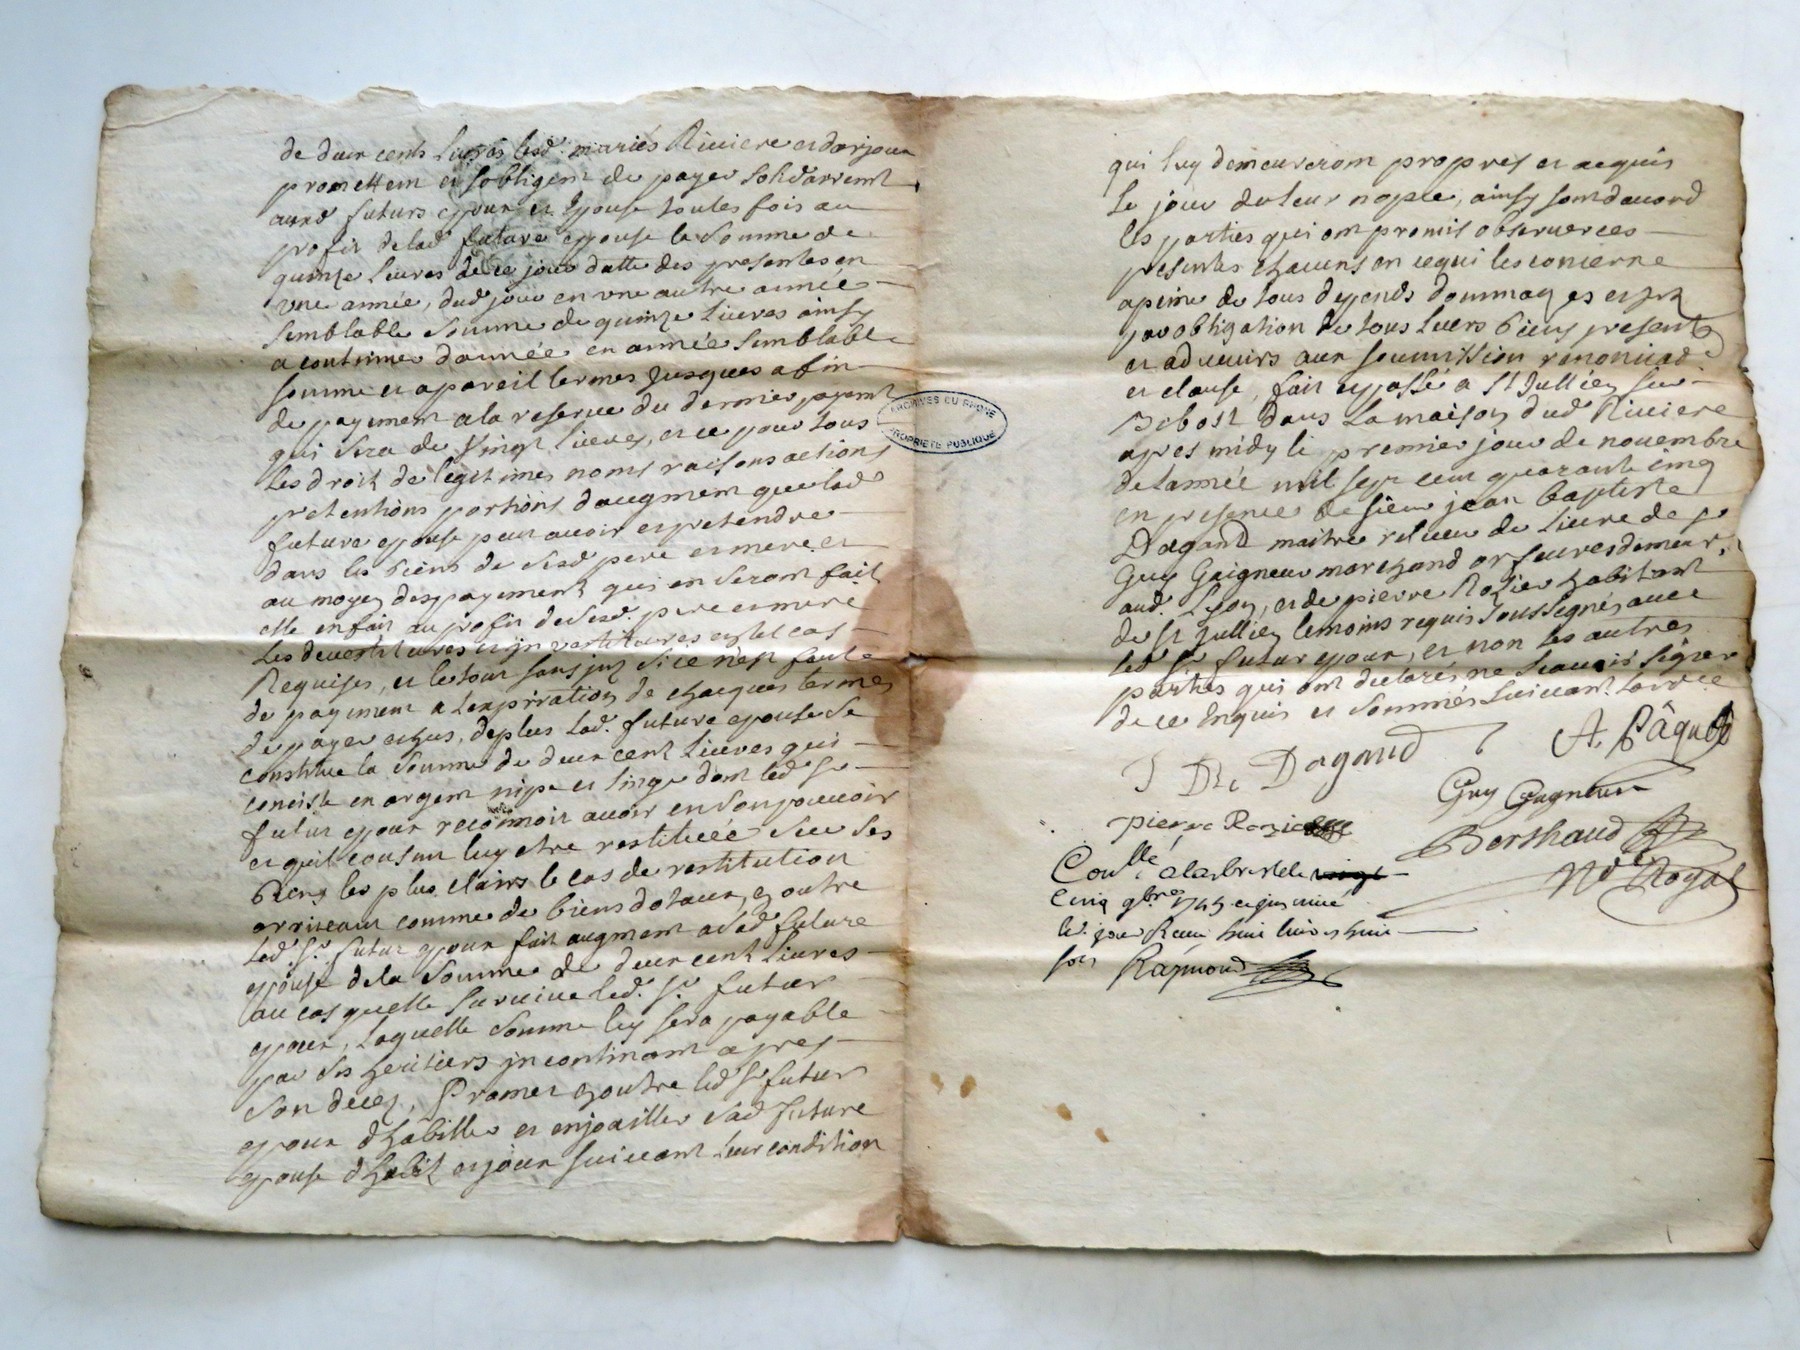 de deux cents livres lesd. mariés Riviere et darjoux
promettent et sobligent de payer solidairemt
auxd futurs epoux et Epouse toutes fois au
profit de lad future epouse la somme de
quinze livres de ce jour datte des presentes en
une année, dud jour en une autre année
semblable somme de quinze livres ainsy
a continuer dannée en année semblable
somme et apareil termes jusques a fin
de payement a la reserve du dernier payemt
qui sera de vingt livres, et ce pour tous
les droit de legitimes noms raisons actions
pretentions portions daugment que lad
future epouse peut avoir et pretendre
dans les biens de sesd pere et mere et
au moyen des payement qui en seront fait
elle en fait au profit de sesd. pere et mere
les devestitures et jnvestitures en tel cas
Requises, et le tout sans jnz si ce n'est faute
de payement a lexpiration de chacques termes
de payer echus, de plus lad. future epouse se
constitue la somme de deux cent livres qui
conciste en argent nipe et linge dont led Sr
futur epoux reconnoit avoir en son pouvoir
et quil consent luy etre restituée sur ses
biens les plus clairs le cas de restitution
arrivant comme de biens dotaux, et outre
led. Sr. futur epoux fait augment a sad future
epouse de la somme de deux cent livres
au cas quelle survive led. Sr futur
epoux, laquelle somme luy sera payable
par ses heritiers jncontinant apres
son decez, Promet en outre led Sr futur
epoux dhabiller et enjoailler sad future
epouse dhabit et joaux suivant leur condition
ARCHIVES DU RHÔNE
PROPRIÉTÉ PUBLIQUE
qui luy demeureront propres et acquis
le jour de leur nopce, ainsy sont dacord
les parties qui ont promis observer ces
presentes chacuns en ce qui les concerne
a peine de tous depends dommages et jnz
par obligation de tous leurs biens presents
et advenirs aux soumission renonciaõ
et clause, fait et passé a St Jullien sur
Bibost dans la maison dud Riviere
apres midy le premier jour de novembre
de lannée mil sept cent quarante cinq
en presence de sieur jean baptiste
Dagand maitre relieur de livre de Sr
Guy Gaigneur marchand orfeuvres demeurt
aud. Lyon, et de pierre Rozier habitant
de St Jullien temoins requis soussignés avec
led Sr. futur epoux, et non les autres
parties qui ont declarés ne scavoir signer
de ce Enquis et sommés suivant lord.ce
J Bte Dagand A. Pâquet
Guy Gagneur
pierre Rozie
Berthaud
Conllé a larbresle le
Cinq 9bre 1745 et jnsinué
Nre Royal
led. jour Receu huit livres huit
sols Raymond